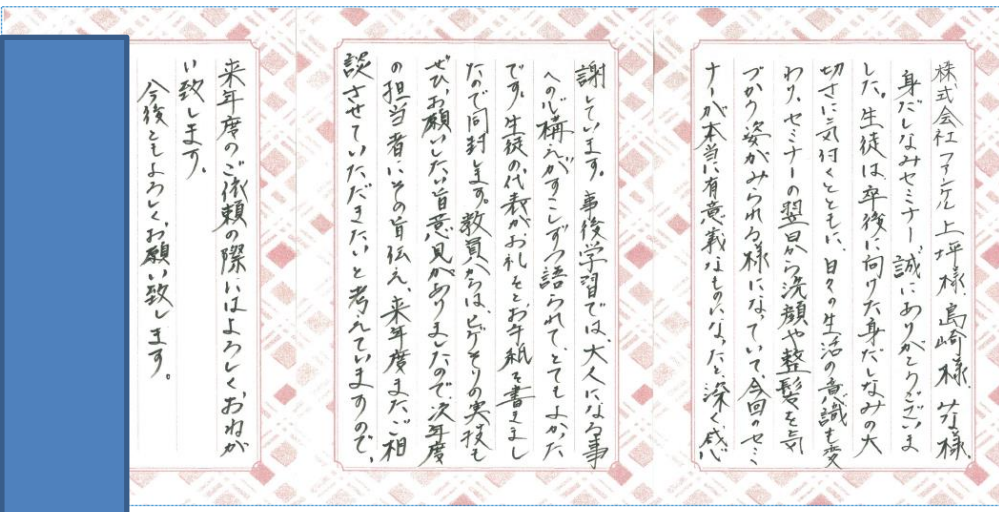 株式会社ファンケル 上坪様、島崎様、サな様、
身だしなみセミナー、誠にありがとうございま
した。生徒は、卒後に向けた身だしなみの大
切さに気付くとともに、日々の生活の意識も変
わり、セミナーの翌日から洗顔や整髪を気
づかう姿がみられる様になっていて、今回のセミ
ナーが本当に有意義なものになったと、深く感
謝しています。事後学習では、大人になる事
への心構えがすこしずつ語られて、とてもよかった
です。生徒の代表がお礼をと、お手紙を書きまし
たので同封します。教員からは、ヒゲそりの実技も
ぜひ、お願いしたい旨意見がありましたので、次年度
の担当者にその旨伝え、来年度またご相
談させていただきたいと考えていますので、
来年度のご依頼の際にはよろしく、おねが
い致します。
今後ともよろしく、お願い致します。